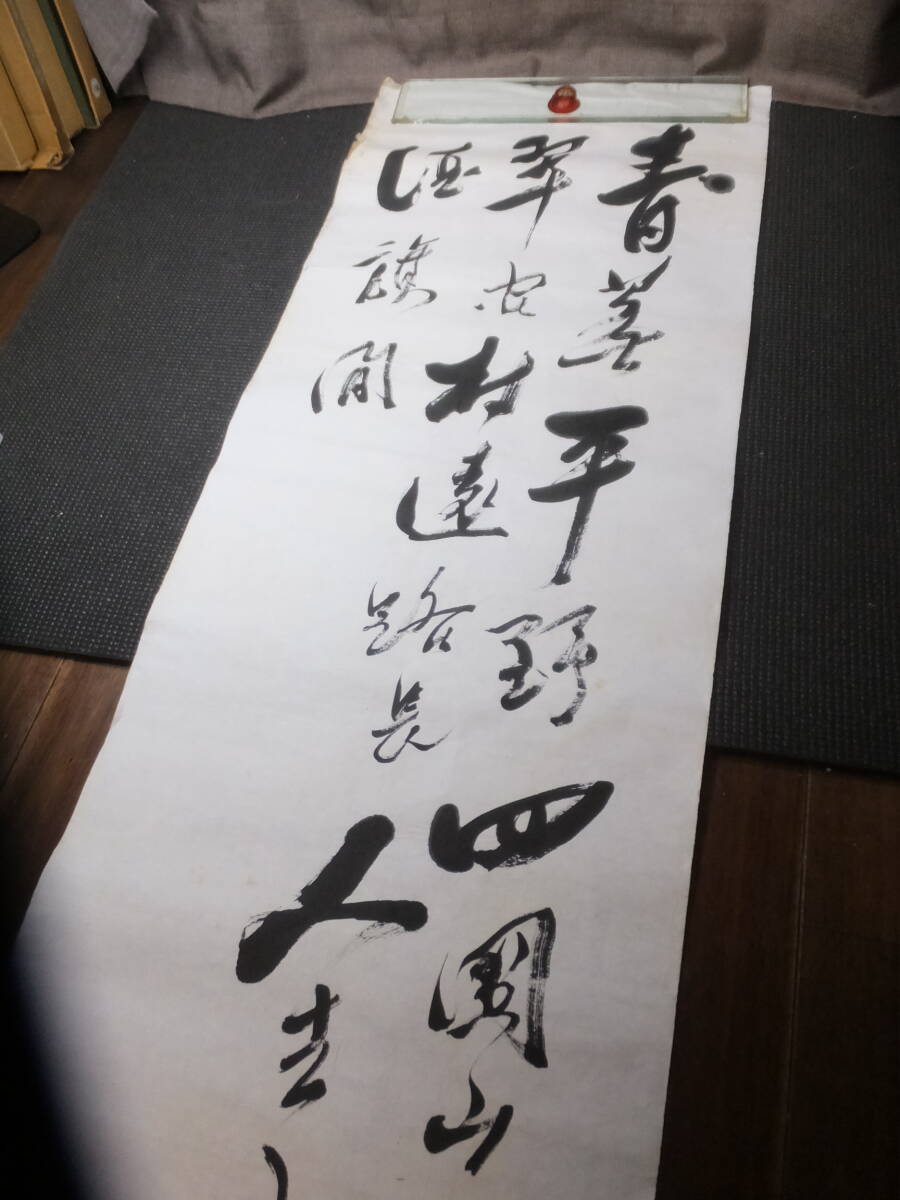 青蕪平野四圍山
翠間村遠路長人去
酒旗閒